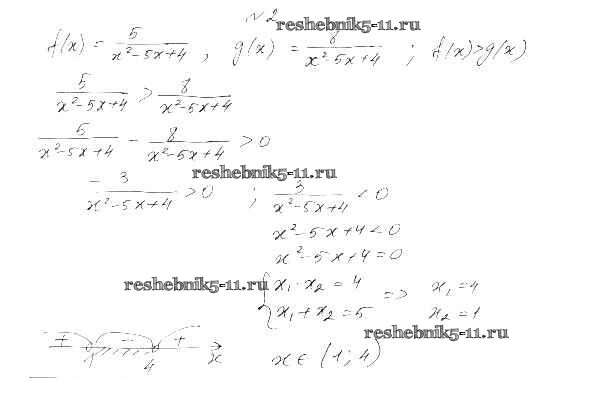 N2
reshebnik5-11.ru
f(x) = 5/(x²-5x+4), g(x) = 8/(x² 5x+4); f(x)>g(x)
5/(x²-5x+4) > 8/(x²-5x+4)
5/(x²-5x+4) - 8/(x²-5x+4) > 0
reshebnik5-11.ru
-3/(x²-5x+4) > 0 ; 3/(x²-5x+4) < 0
x²-5x+4<0
x²-5x+4=0
reshebnik5-11.ru
{ x₁·x₂=4 => x₁=4
x₁+x₂=5 x₂=1
reshebnik5-11.ru
+ - +
1 4 x
x∈(1;4)